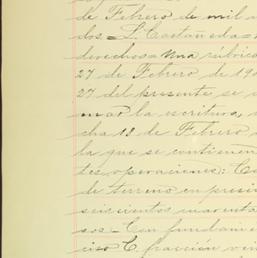 de Febrero de mil
dos = L. Castañeda =
derechos = Una rúbric
27 de Febrero de 19
27 del presente se
la escritura,
cha 18 de Febrero
la que se contienen
tes operaciones:
de terreno en
seiscientos cuarenta
sos = Con fundam
ciso C. fracción